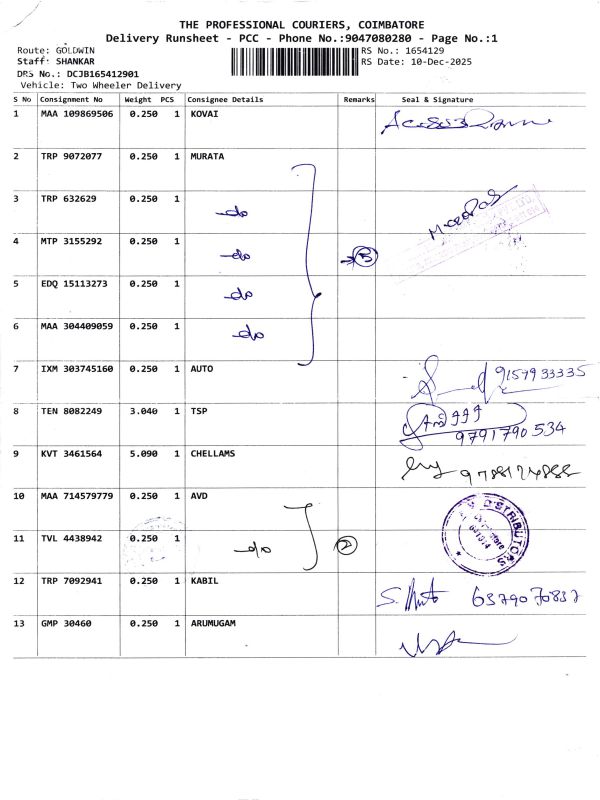 THE PROFESSIONAL COURIERS, COIMBATORE
Delivery Runsheet - PCC - Phone No.:9047080280 - Page No.:1
Route: GOLDWIN
RS No.: 1654129
Staff: SHANKAR
RS Date: 10-Dec-2025
DRS No.: DCJB165412901
Vehicle: Two Wheeler Delivery
S No Consignment No Weight PCS Consignee Details Remarks Seal & Signature
1 MAA 109869506 0.250 1 KOVAI
2 TRP 9072077 0.250 1 MURATA
3 TRP 632629 0.250 1 -do
4 MTP 3155292 0.250 1 -do 5
5 EDQ 15113273 0.250 1 -do
6 MAA 304409059 0.250 1 -do
7 IXM 303745160 0.250 1 AUTO 9159933335
8 TEN 8082249 3.040 1 TSP 9791790534
9 KVT 3461564 5.090 1 CHELLAMS
10 MAA 714579779 0.250 1 AVD DISTRIBUTORS
11 TVL 4438942 0.250 1 -do 2
12 TRP 7092941 0.250 1 KABIL 6379070837
13 GMP 30460 0.250 1 ARUMUGAM